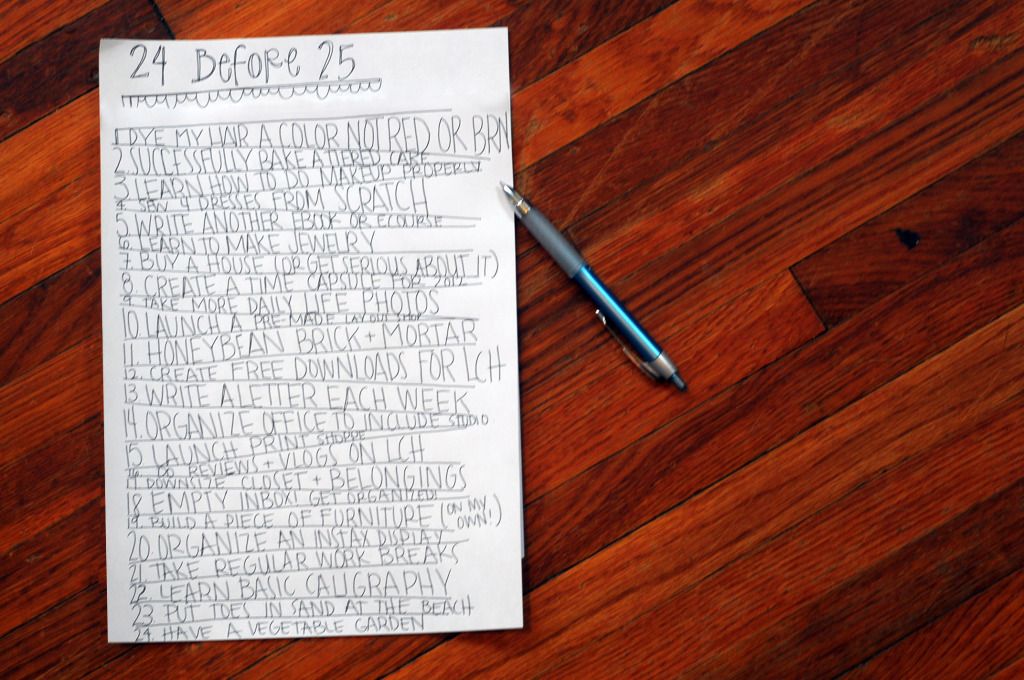 24 Before 25
1. DYE MY HAIR A COLOR NOT RED OR BRN
2. SUCCESSFULLY BAKE A TIERED CAKE
3. LEARN HOW TO DO MAKEUP PROPERLY
4. SEW 4 DRESSES FROM SCRATCH
5. WRITE ANOTHER EBOOK OR ECOURSE
6. LEARN TO MAKE JEWELRY
7. BUY A HOUSE (OR GET SERIOUS ABOUT IT)
8. CREATE A TIME CAPSULE FOR 2012
9. TAKE MORE DAILY LIFE PHOTOS
10. LAUNCH A PRE MADE LAYOUT SHOP
11. HONEYBEAN BRICK + MORTAR
12. CREATE FREE DOWNLOADS FOR LCH
13. WRITE A LETTER EACH WEEK
14. ORGANIZE OFFICE TO INCLUDE STUDIO
15. LAUNCH PRINT SHOPPE
16. DO REVIEWS + VLOGS ON LCH
17. DOWNSIZE CLOSET + BELONGINGS
18. EMPTY INBOX! GET ORGANIZED!
19. BUILD A PIECE OF FURNITURE (ON MY OWN!)
20. ORGANIZE AN INSTAX DISPLAY
21. TAKE REGULAR WORK BREAKS
22. LEARN BASIC CALIGRAPHY
23. PUT TOES IN SAND AT THE BEACH
24. HAVE A VEGETABLE GARDEN